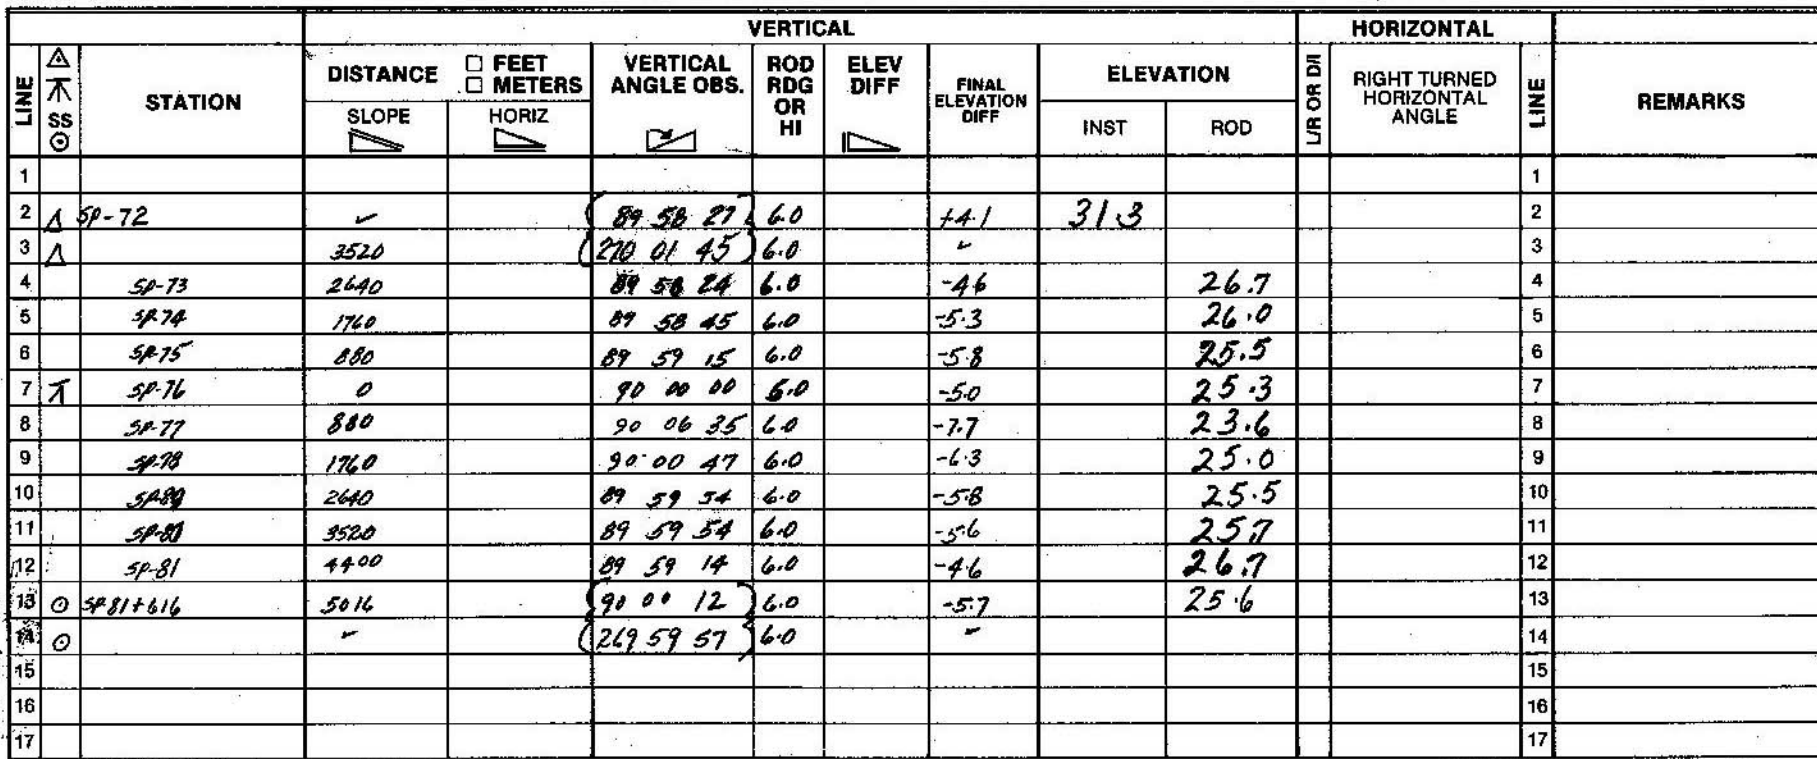 VERTICAL HORIZONTAL
LINE SS STATION DISTANCE □ FEET □ METERS SLOPE HORIZ VERTICAL ANGLE OBS. ROD RDG OR HI ELEV DIFF FINAL ELEVATION DIFF ELEVATION INST ROD L/R OR D/I RIGHT TURNED HORIZONTAL ANGLE LINE REMARKS
1 1
2 △ SP-72 ✓ 89 58 27 6.0 +4.1 31.3 2
3 △ 3520 270 01 45 6.0 ✓ 3
4 SP-73 2640 89 58 24 6.0 -4.6 26.7 4
5 SP-74 1760 89 58 45 6.0 -5.3 26.0 5
6 SP-75 880 89 59 15 6.0 -5.8 25.5 6
7 SP-76 0 90 00 00 6.0 -5.0 25.3 7
8 SP-77 880 90 06 35 6.0 -7.7 23.6 8
9 SP-78 1760 90 00 47 6.0 -6.3 25.0 9
10 2640 89 59 54 6.0 -5.8 25.5 10
11 3520 89 59 54 6.0 -5.6 25.7 11
12 SP-81 4400 89 59 14 6.0 -4.6 26.7 12
13 ⊙ SP 81+616 5016 90 00 12 6.0 -5.7 25.6 13
14 ⊙ ✓ 269 59 57 6.0 ✓ 14
15 15
16 16
17 17